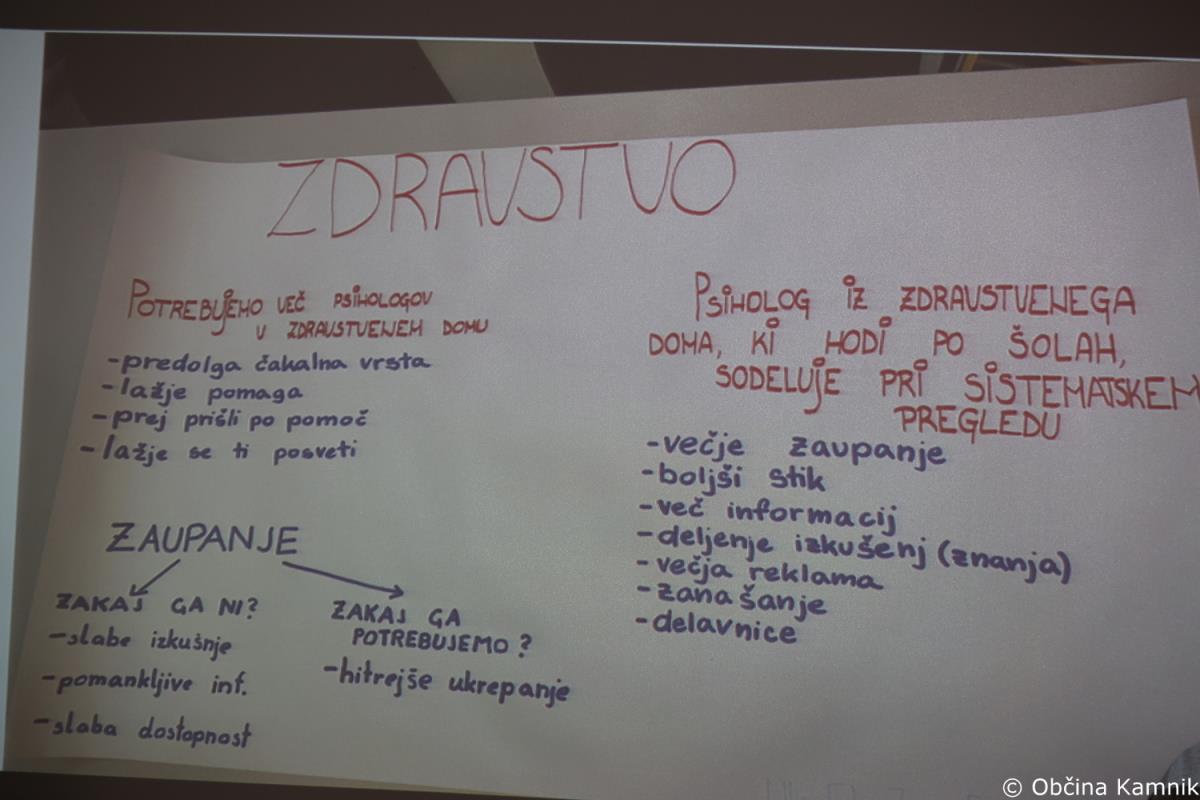 ZDRAVSTVO
POTREBUJEMO VEČ PSIHOLOGOV
V ZDRAVSTVENEM DOMU
-predolga čakalna vrsta
-lažje pomaga
-prej prišli po pomoč
-lažje se ti posveti
ZAUPANJE
ZAKAJ GA NI?
-slabe izkušnje
-pomankljive inf.
-slaba dostopnost
ZAKAJ GA
POTREBUJEMO?
-hitrejše ukrepanje
PSIHOLOG IZ ZDRAVSTVENEGA
DOMA, KI HODI PO ŠOLAH,
SODELUJE PRI SISTEMATSKEM
PREGLEDU
-večje zaupanje
-boljši stik
-več informacij
-deljenje izkušenj (znanja)
-večja reklama
-zanašanje
-delavnice
© Občina Kamnik